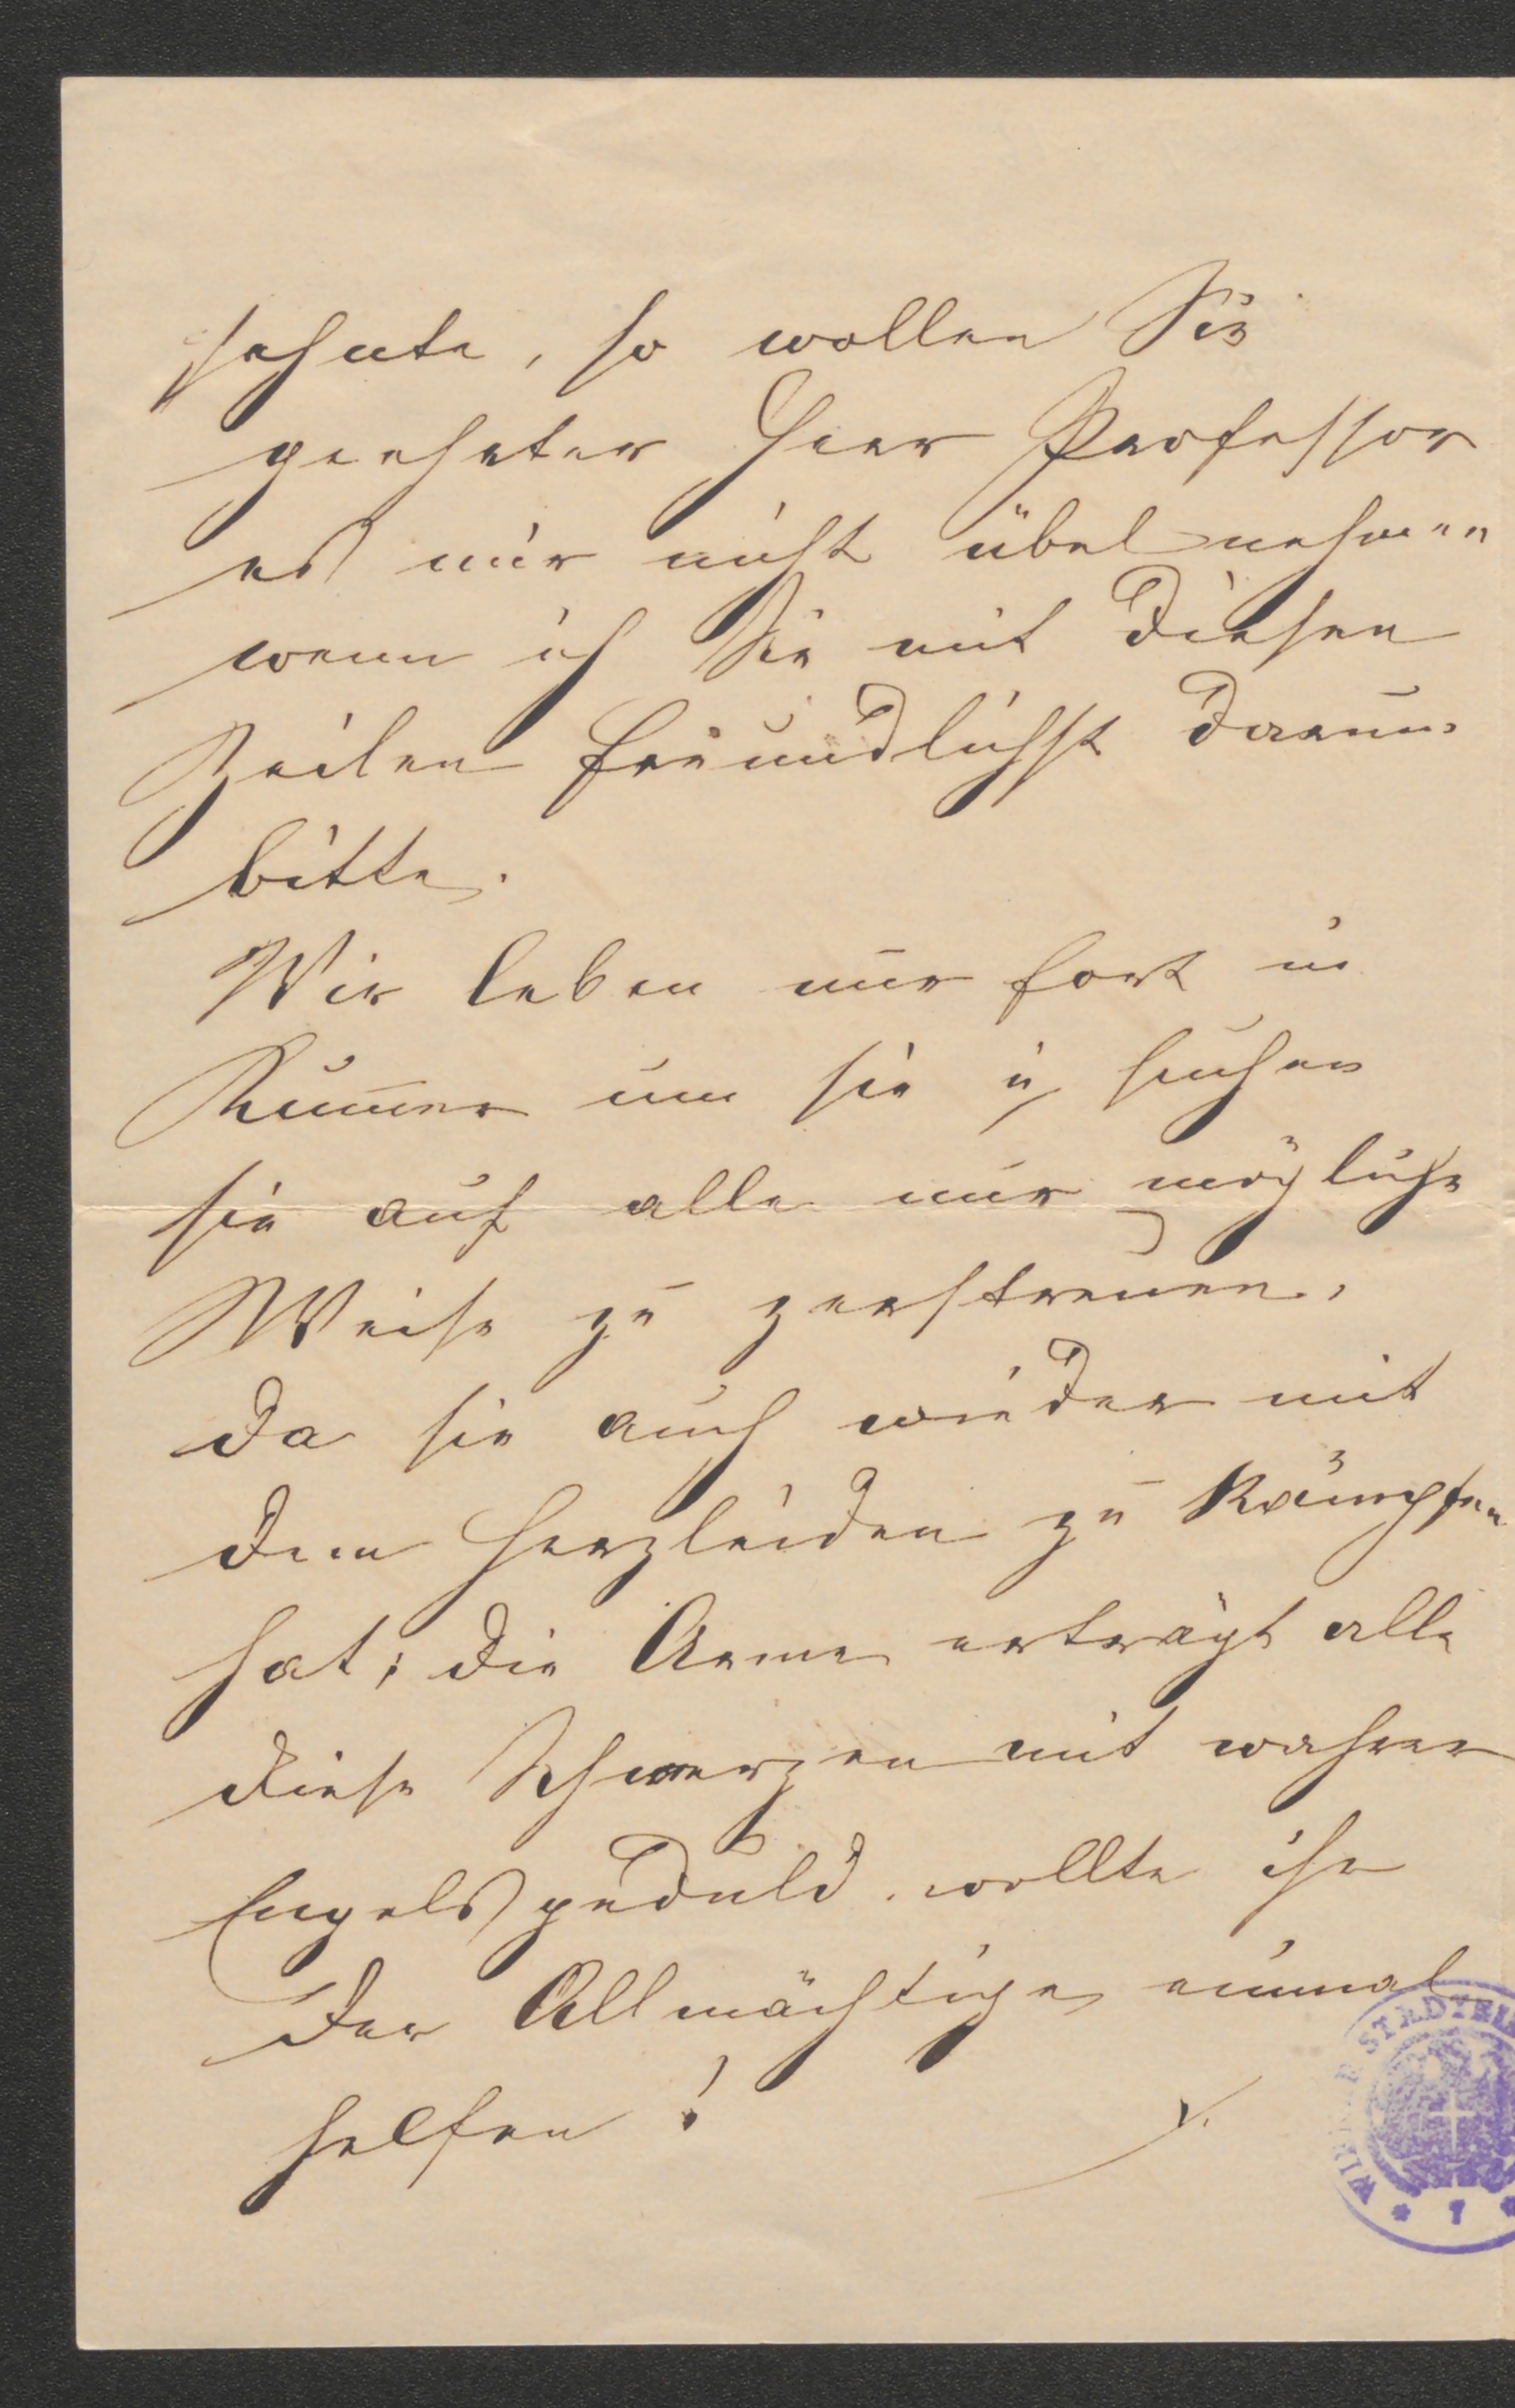 sehnte, so wollen Sie
geehrter Herr Professor
es mir nicht übel nehmen
wenn ich Sie mit diesen
Zeilen freundlichst darum
bitte.
Wir leben nur fort in
Kum̅er um sie u suchen
sie auf alle nur mögliche
Weise zu zerstreuen,
da sie auch wieder mit
dem Herzleiden zu kämpfen
hat; die Arme erträgt alle
diese Schmerzen mit wahrer
Engelsgeduld. wollte ihr
der Allmächtige einmal
helfen!
WIENER STADTBI
* 7 *